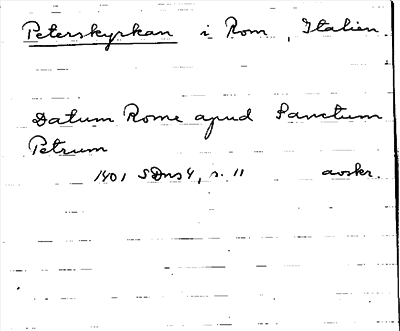 Peterskyrkan i Rom, Italien
Datum Rome apud Sanctum
Petrum
1401 SDns 4, s. 11 avskr.